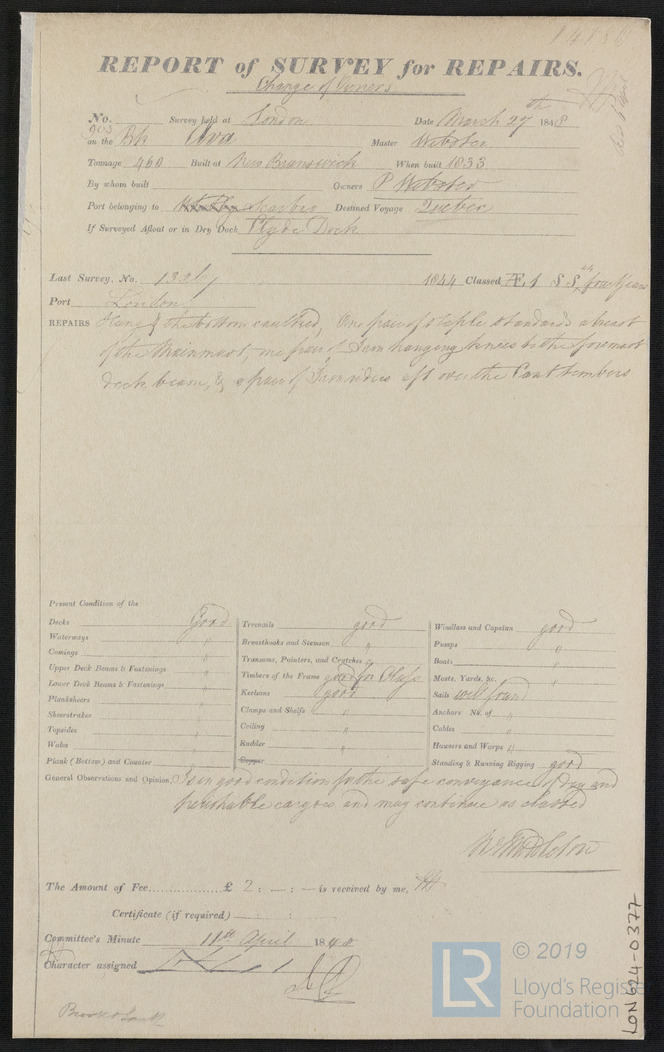 14186
REPORT of SURVEY for REPAIRS.
Change of Owners
No. Survey held at London Date March 27th 1848
on the Bk Ava Master Webster
Tonnage 460 Built at New Brunswick When built 1833
By whom built Owners P Webster
Port belonging to Destined Voyage Quebec
If Surveyed Afloat or in Dry Dock Clyde Dock
Last Survey, No. 1844 Classed Æ 1 four Years
Port London
REPAIRS the bottom caulked, One pair of staple standards abreast
of the Mainmast, one pair of Iron hanging knees to the foremost
deck beam, & a pair of Iron riders aft over the Cant timbers
Present Condition of the
Decks Good
Waterways "
Comings "
Upper Deck Beams & Fastenings "
Lower Deck Beams & Fastenings "
Planksheers "
Sheerstrakes "
Topsides "
Wales "
Plank (Bottom) and Counter "
Treenails good
Breasthooks and Stemson "
Transoms, Pointers, and Crutches "
Timbers of the Frame good for Class
Keelsons good
Clamps and Shelfs "
Ceiling "
Rudder "
Copper
Windlass and Capstan good
Pumps "
Boats "
Masts, Yards, &c. "
Sails well found
Anchors No. of "
Cables "
Hawsers and Warps "
Standing & Running Rigging good
General Observations and Opinion, Is in good condition for the safe conveyance of dry and
perishable cargoes and may continue as classed
Wm Middleton
The Amount of Fee £ 2 : — : — is received by me,
Certificate (if required)
Committee's Minute 11th April 1848
Character assigned
LR
© 2019
Lloyd's Register
Foundation
LON 624-0377